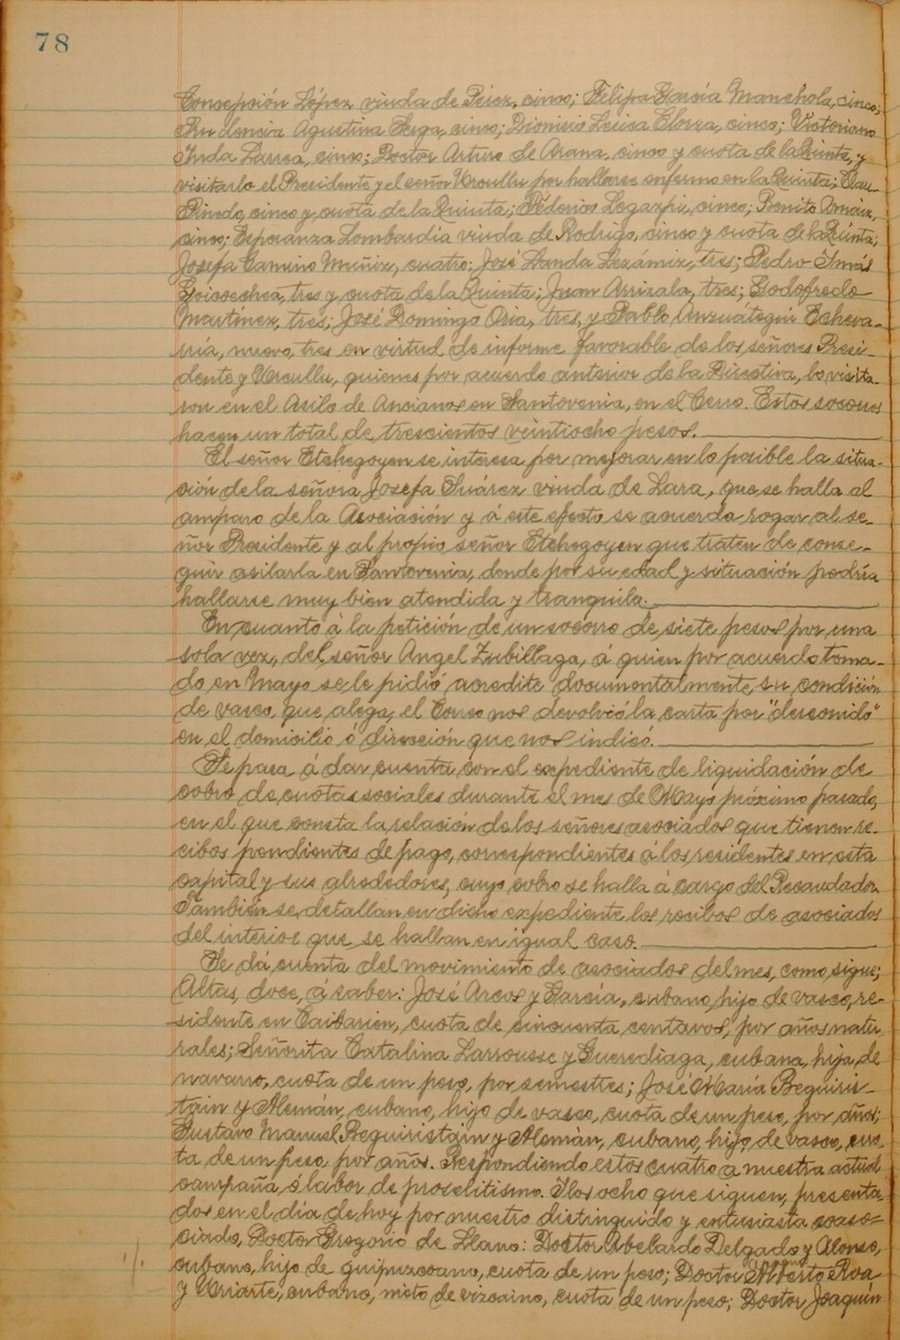 78
Concepción López viuda de Pérez, cinco; Felipa García Manchola, cinco;
Prudencia Agustina Iserga, cinco; Dionisio Leiisa Elorza, cinco; Victoriano
Inda Larrea, cinco; Doctor Arturo de Arana, cinco y cuota de la Quinta, y
visitarlo el Presidente y el señor Urcullu por hallarse enfermo en la Quinta;
Pinedo, cinco y cuota de la Quinta; Féderico Legazpi, cinco; Benito
cinco; Esperanza Lombardía viuda de Rodrigo, cinco y cuota de la Quinta;
Josefa Camino Muñiz, cuatro; José Landa Lezámiz, tres; Pedro Imás
Goicoechea, tres y cuota de la Quinta; Juan Arrizala, tres; Godofredo
Martínez, tres; José Domingo Oria, tres, y Pablo Anzuátegui Echeva-
rría, nuevo, tres en virtud de informe favorable de los señores Presi-
dente y Urcullu, quienes por acuerdo anterior de la Directiva, lo visita-
ron en el Asilo de Ancianos en Santovenia, en el Cerro. Estos socorros
hacen un total de trescientos veintiocho pesos.
El señor Etchegoyen se interesa por mejorar en lo posible la situa-
ción de la señora Josefa Suárez viuda de Lara, que se halla al
amparo de la Asociación y á este efecto se acuerda rogar al se-
ñor Presidente y al propio señor Etchegoyen que traten de conse-
guir asilarla en Santovenia, donde por su edad y situación podría
hallarse muy bien atendida y tranquila.
En cuanto á la petición de un socorro de siete pesos por una
sola vez, del señor Angel Zubillaga, á quien por acuerdo toma-
do en Mayo se le pidió acredite documentalmente, su condición
de vasco, que alega, el Correo nos devolvió la carta por "desconido"
en el domicilio ó dirección que nos indicó.
Se pasa á dar cuenta con el expediente de liquidación de
cobro de cuotas sociales durante el mes de Mayo próximo pasado,
en el que consta la relación de los señores asociados que tienen re-
cibos pendientes de pago, correspondientes á los residentes en esta
capital y sus alrededores, cuyo cobro se halla á cargo del Recaudador.
También se detallan en dicho expediente los recibos de asociados
del interior que se hallan en igual caso.
Se dá cuenta del movimiento de asociados del mes, como sigue;
Altas, doce, á saber: José Arcos y García, cubano, hijo de vasco, re-
sidente en Caibarien, cuota de cincuenta centavos, por años natu
rales; Señorita Catalina Larrousse y Guerediaga, cubana, hija de
navarro, cuota de un peso, por semestres; José María Beguiris-
tain y Alemán, cubano, hijo de vasco, cuota de un peso, por años;
Gustavo Manuel Beguiristain y Alemán, cubano, hijo de vasco, cuo-
ta de un peso, por años. Respondiendo estos cuatro a nuestra actual
campaña, ó labor de proselitismo. Y los ocho que siguen, presenta
dos en el día de hoy por nuestro distinguido y entusiasta coaso-
ciado, Doctor Gregorio de Llano: Doctor Abelardo Delgado y Alonso,
cubano, hijo de guipuzcoano, cuota de un peso; Doctor Alberto Roa
y Uriarte, cubano, nieto de vizcaino, cuota de un peso; Doctor Joaquín